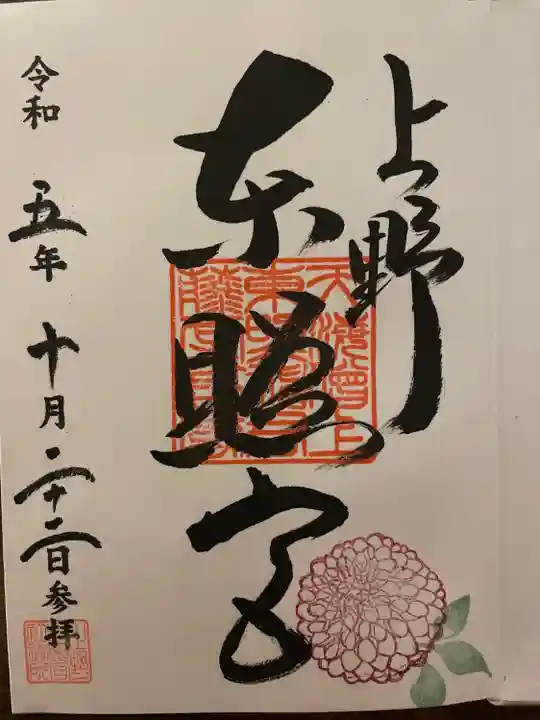 上野
東照宮
令和 五年 十月 二十二日 参拝